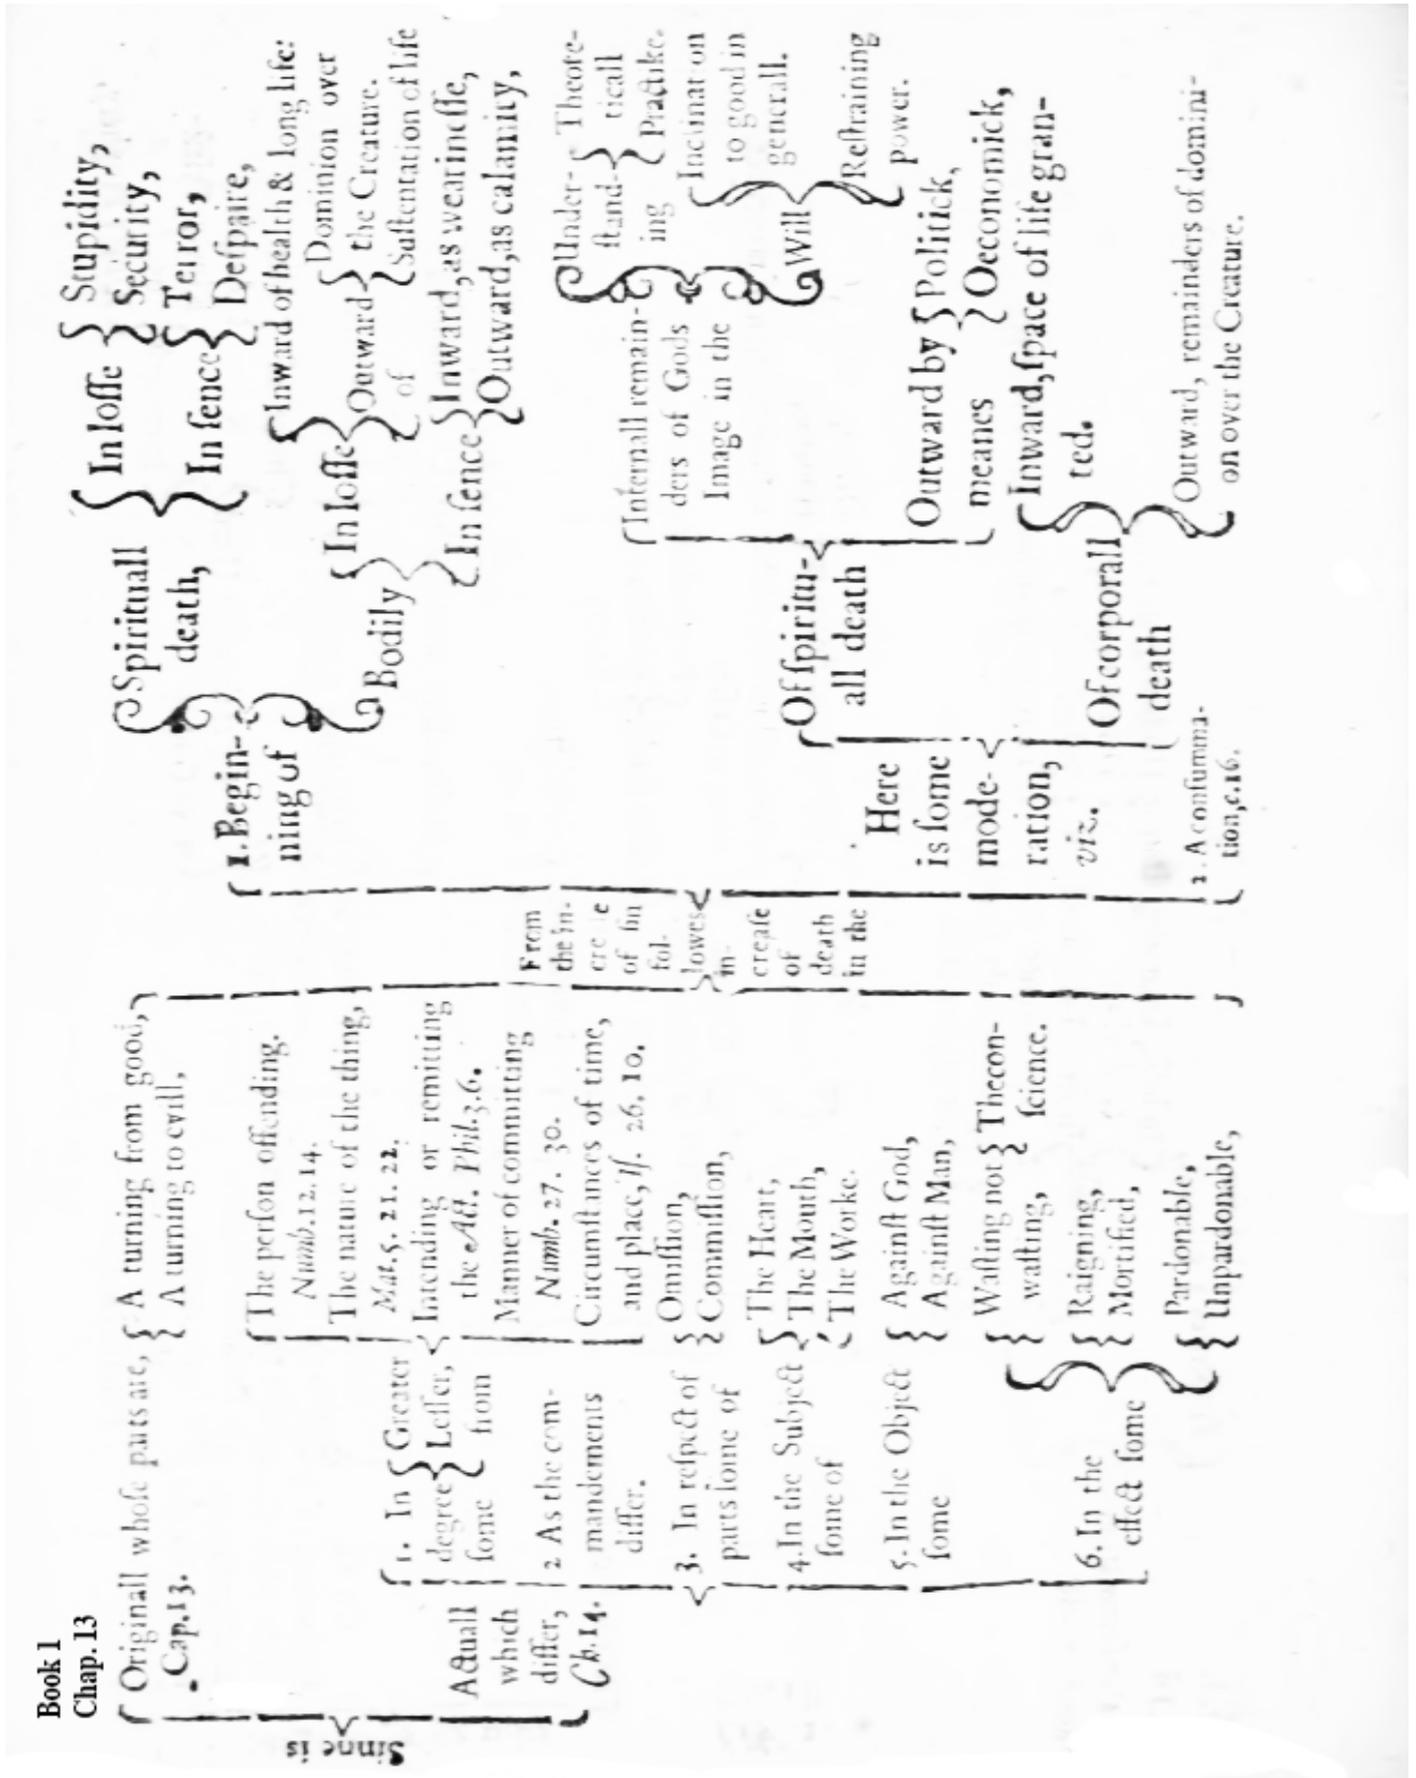 Book 1
Chap. 13
Sinne is
Originall whose parts are,
Cap. 13.
A turning from good,
A turning to evill,
Actuall
which
differ,
Ch. 14.
1. In
degree
some
Greater
Lesser,
from
The person offending.
Numb. 12. 14.
The nature of the thing,
Mat. 5. 21. 22.
Intending or remitting
the Act. Phil. 3. 6.
Manner of committing
Numb. 27. 30.
Circumstances of time,
and place, Is. 26. 10.
2 As the com-
mandements
differ.
3. In respect of
parts some of
Omission,
Commission,
4. In the Subject
some of
The Heart,
The Mouth,
The Worke.
5. In the Object
some
Against God,
Against Man,
6. In the
effect some
Wasting not
wasting,
The con-
science.
Raigning,
Mortified,
Pardonable,
Unpardonable,
From
the in-
of sin
fol-
lowes
in-
crease
of
death
in the
1. Begin-
ning of
Spirituall
death,
In losse
Stupidity,
Security,
In sence
Terror,
Despaire,
Bodily
In losse
Inward of health & long life:
Outward
of
Dominion over
the Creature.
Sustentation of life
In sence
Inward, as wearinesse,
Outward, as calamity,
Here
is some
mode-
ration,
viz.
Of spiritu-
all death
Internall remain-
ders of Gods
Image in the
Under-
stand-
ing
Theore-
ticall
Practike.
Will
Inclination
to good in
generall.
Restraining
power.
Outward by
meanes
Politick,
Oeconomick,
Of corporall
death
Inward, space of life gran-
ted.
Outward, remainders of domini-
on over the Creature.
2. A consumma-
tion, c. 16.